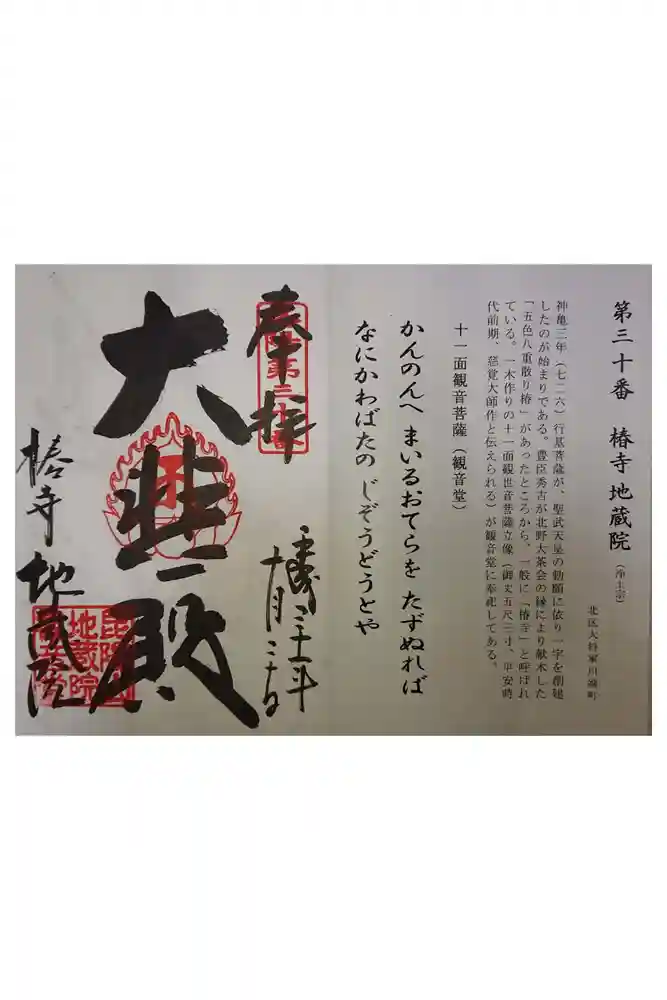 第三十番 椿寺地蔵院（浄土宗）
北区大将軍川端町
神亀三年（七二六）行基菩薩が、聖武天皇の勅願に依り一宇を創建
したのが始まりである。豊臣秀吉が北野大茶会の縁により献木した
「五色八重散り椿」があったところから、一般に「椿寺」と呼ばれ
ている。一木作りの十一面観世音菩薩立像（御丈五尺三寸、平安時
代前期、慈覚大師作と伝えられる）が観音堂に奉祀してある。
十一面観音菩薩（観音堂）
かんのんへ まいるおてらを たずぬれば
なにかわばたの じぞうどうとや
奉拝
第三十番
三十一年
十月三十日
大悲殿
椿寺 地蔵院
地蔵院